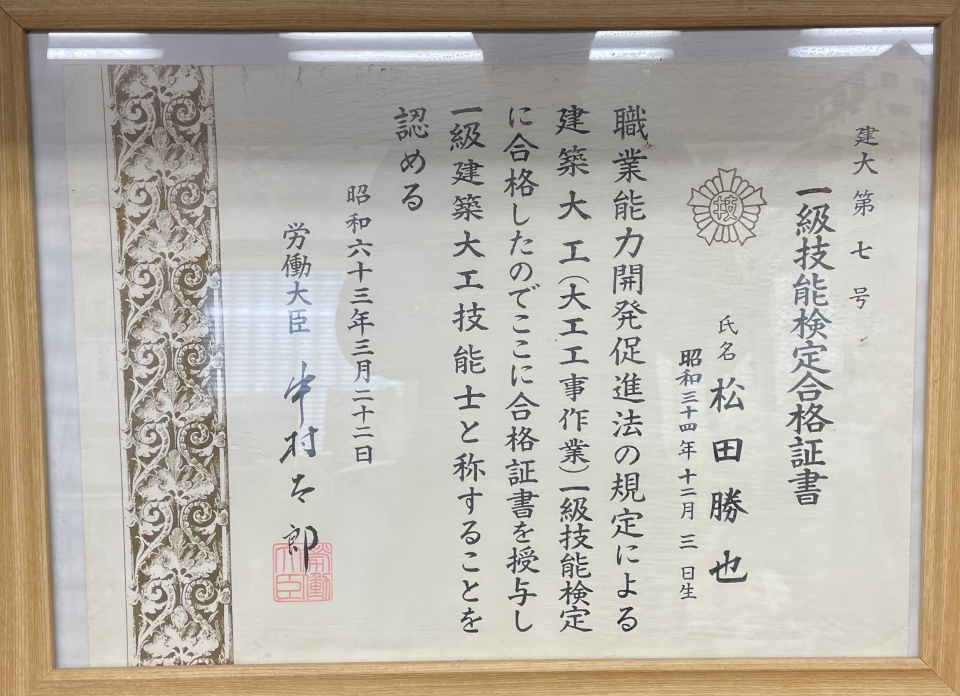 建大第七号
一級技能検定合格証書
技
氏名 松田勝也
昭和三十四年十二月三日生
職業能力開発促進法の規定による
建築大工(大工工事作業)一級技能検定
に合格したのでここに合格証書を授与し
一級建築大工技能士と称することを
認める
昭和六十三年三月二十二日
労働大臣 中村太郎
労働大臣